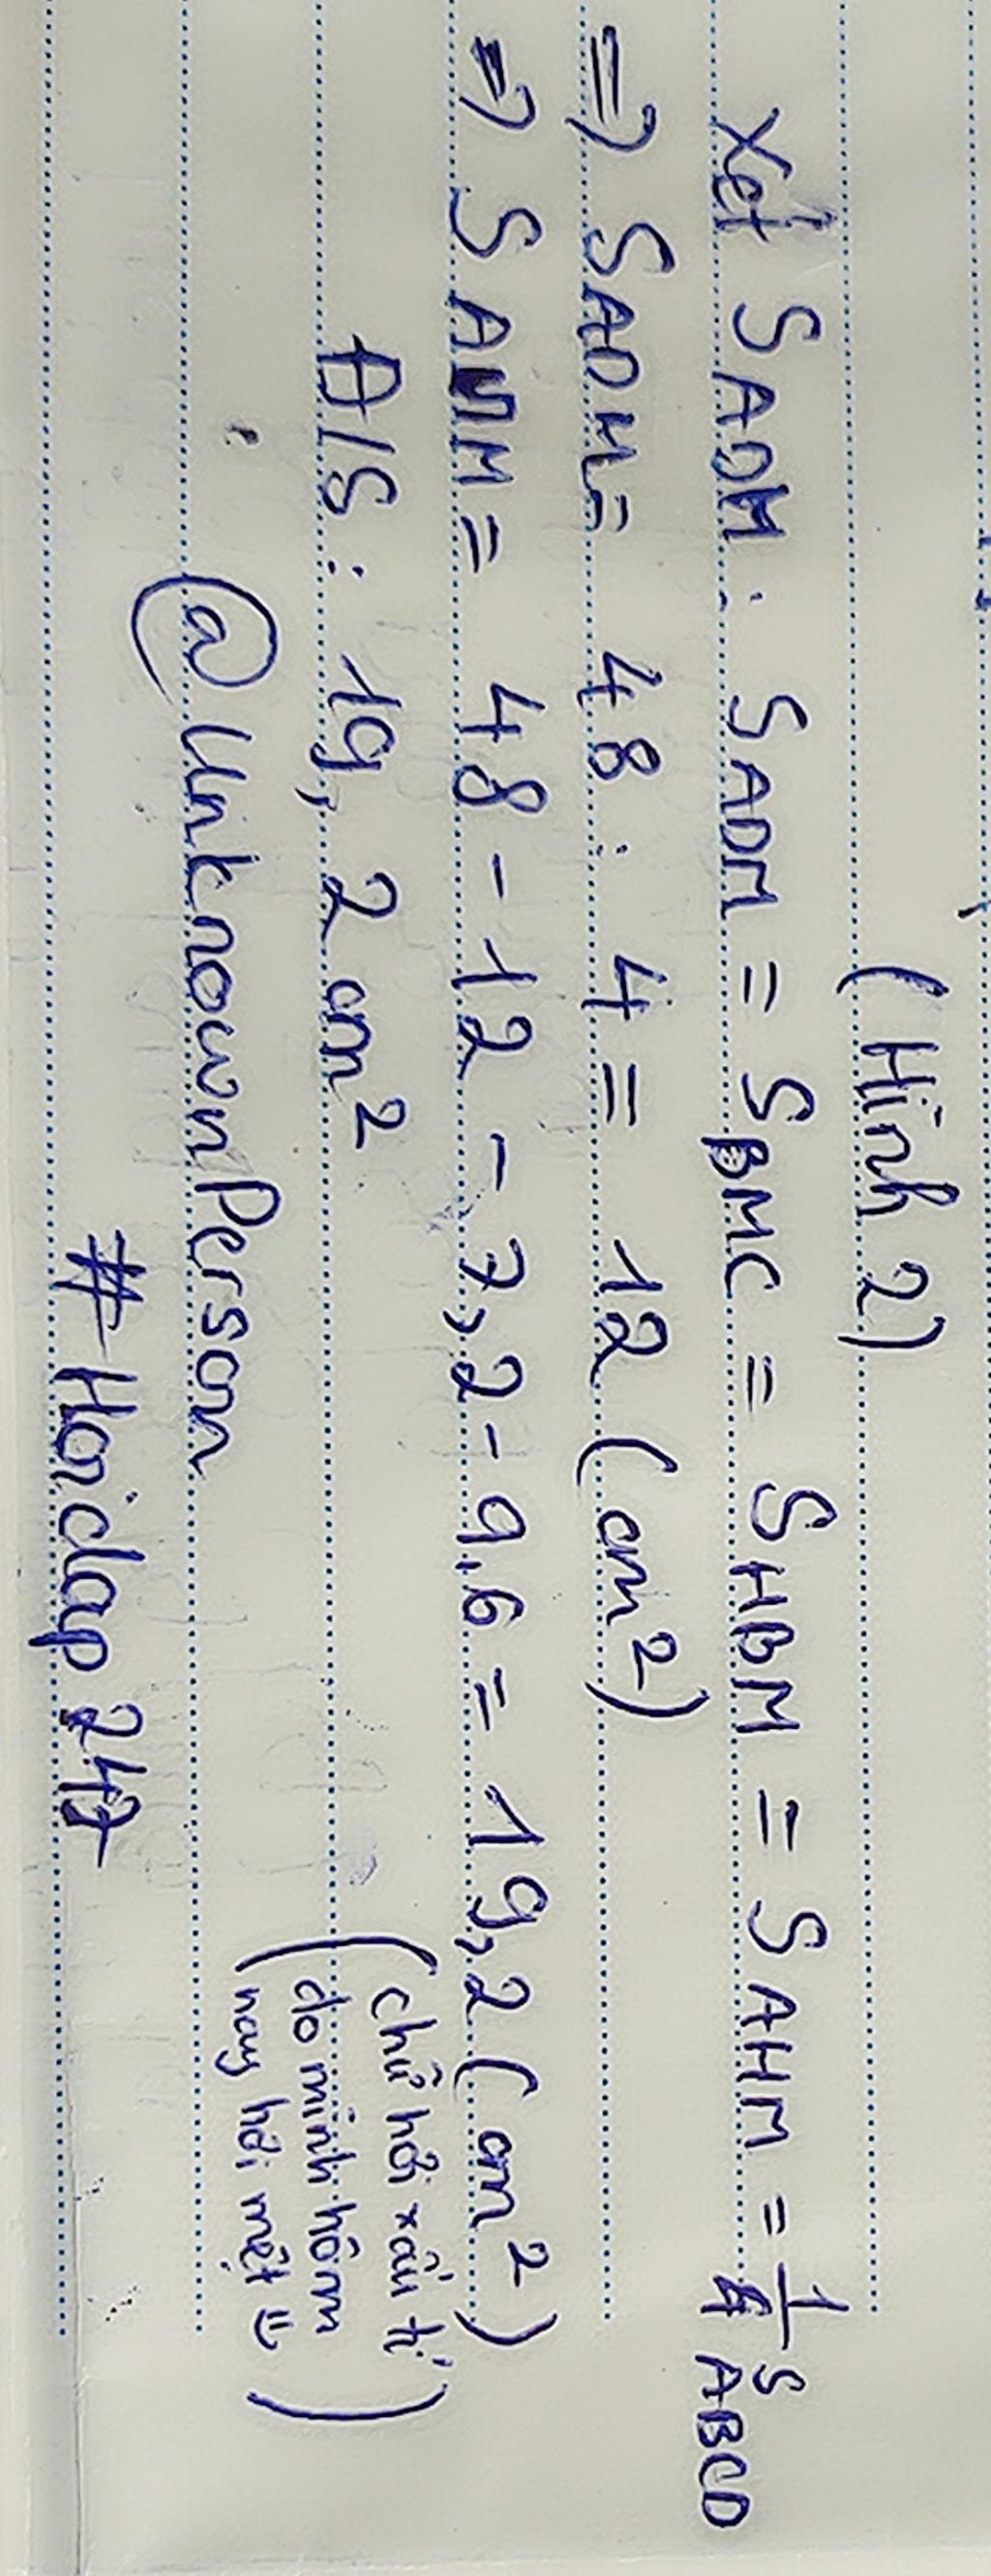 (Hình 2)
Xét SADM: SADM = SBMC = SHBM = SAHM = 1/4 SABCD
=> SADM = 48 : 4 = 12 (cm²)
=> SANM = 48 - 12 - 7,2 - 9,6 = 19,2 (cm²)
Đ/S : 19,2 cm²
(chữ hơi xấu tí
do mình hôm
nay hơi mệt =))
@UnknownPerson
#Hoidap247